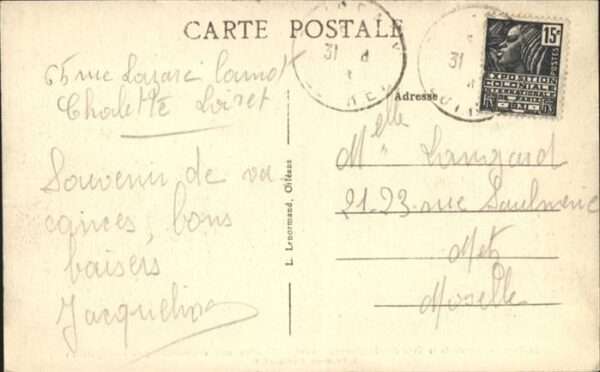 CARTE POSTALE
65 rue Lazare Carnot
Chalette Loiret
Souvenir de va
cances, bons
baisers
Jacqueline
L. Lenormand, Orléans
31
31
15c
POSTES
EXPOSITION
COLONIALE
INTERNATIONALE
DE PARIS
1931
Adresse
Melle Langard
21-23 rue Saulnerie
Metz
Moselle